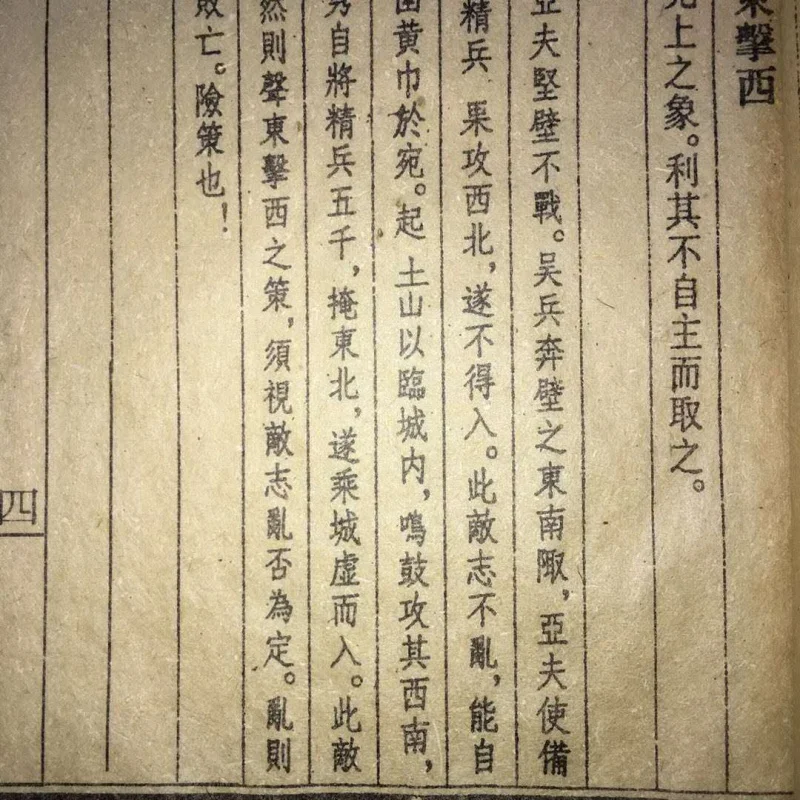 東擊西
上之象。利其不自主而取之。
亞夫堅壁不戰。吴兵奔壁之東南陬，亞夫使備
精兵　果攻西北，遂不得入。此敵志不亂，能自
黄巾於宛。起　土山以臨城内，鳴鼓攻其西南，
自將精兵五千，掩東北，遂乘城虚而入。此敵
然則聲東擊西之策，須視敵志亂否為定。亂則
敗亡。險策也！
四